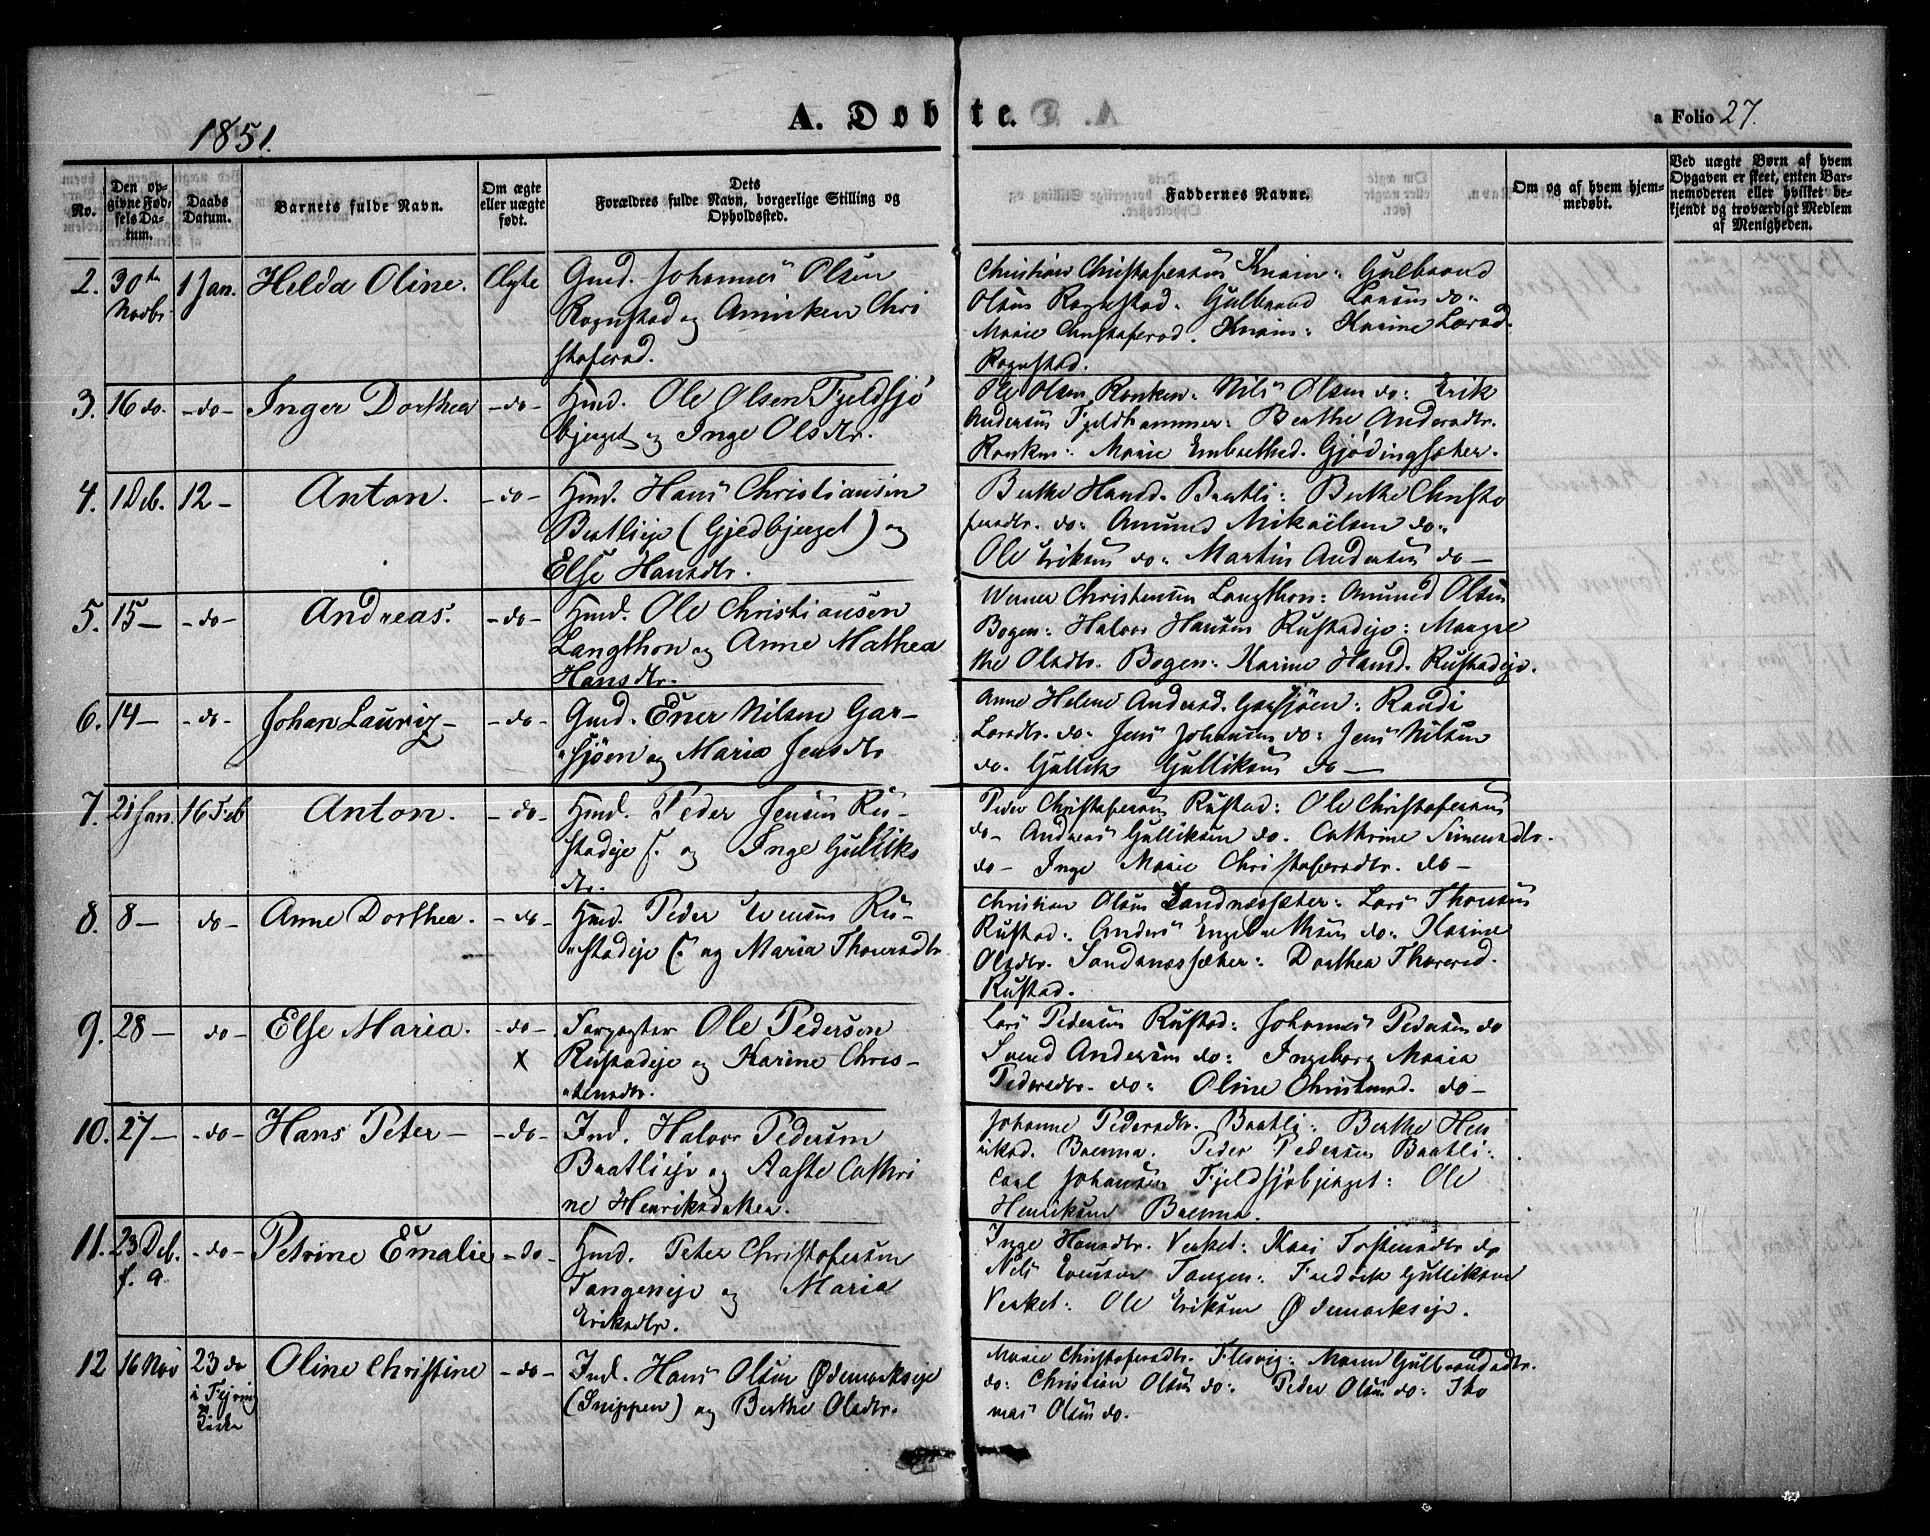 1851.
A. Døbte.
a Folio 27.
No.
Den opgivne Fødsels Datum.
Daabs Datum.
Barnets fulde Navn.
Om ægte eller uægte født.
Dets
Forældres fulde Navn, borgerlige Stilling og
Opholdssted.
Faddernes Navne.
Om og af hvem hjemmedøbt.
Ved uægte Børn af hvem
Opgaven er skeet, enten Barnemoderen eller hvilket bekjendt og troværdigt Medlem
af Menigheden.
2. 30te Novbr 1 Jan. Helda Oline. Ægte Gmd. Johannes Olsen
Rognstad og Anniken Chri
stofersd.
Christian Christofersen Knain: Gulbrand
Olsen Rognstad: Gulbrand Larsen do:
Marie Christofersd. Knain: Karine Larsd.
Rognstad.
3. 16 do. -do- Inger Dorthea -do- Hmd. Ole Olsen Fjeldsjø
bjerget og Inge Olsdtr.
Ole Olsen Ronken: Nils Olsen do: Erik
Andersen Fjeldhammer: Berthe Andersdtr.
Ronken: Marie Embrethsd. Gjødingsæter.
4. 1 Deb. 12 - Anton. -do- Hmd. Hans Christiansen
Bratlieje (Gjedbjerget) og
Else Hansdtr.
Berthe Hansd. Bratli: Berthe Christo
fersdtr. do: Amund Mikaelsen do:
Ole Eriksen do: Martin Andersen do -
5. 15 - -do- Andreas. -do- Hmd. Ole Christiansen
Langthon og Anne Mathea
Hansdtr.
Werner Christensen Langthon: Amund Olsen
Bogen: Halvor Hansen Rustadeje: Maagre
the Olsdtr. Bogen: Karine Hansd. Rustadeje.
6. 14 - -do- Johan Lauriz - -do- Gmd. Ener Nilsen Gar-
sjøen og Maria Jensdtr
Anne Helene Andersd. Garsjøen: Randi
Larsdtr. do: Jens Johansen do: Jens Nilsen
do. Gullik Gulliksen do -
7. 21 Jan. 16 Feb Anton. -do- Hmd. Peder Jensen Ru-
stadeje f. og Inge Gulliks
dtr.
Peder Christofersen Rustad: Ole Christofersen
do - Andreas Gulliksen do. Cathrine Simensdtr.
do - Inge Marie Christofersdtr. do -
8. 8 - do - Anne Dorthea. -do- Hmd. Peder Evensen Ru-
stadeje f. og Maria Thoresdtr
Christian Olsen Sandnæssæter: Lars Thoresen
Rustad: Anders Engebrethsen do: Karine
Olsdtr. Sandnæssæter: Dorthea Thoresd.
Rustad.
9. 28 - do - Else Maria. -do- x Forpagter Ole Pedersen
Rustadeje og Karine Chris-
tensdtr.
Lars Pedersen Rustad: Johannes Pedersen do
Svend Andersen do: Ingeborg Maria
Pedersdtr. do: Oline Christensd. do -
10. 27 - -do- Hans Peter - -do- Ind. Halvor Pedersen
Bratlieje og Aaste Cathri
ne Henriksdatter.
Johanne Pedersdtr. Bratli: Berthe Hen
riksd. Brenna. Peder Pedersen Bratli:
Carl Johansen Fjeldsjøbjerget: Ole
Henriksen Brenna.
11. 23 Deb. f. a. -do- Petrine Emalie -do- Hmd. Peter Christofersen
Tangeneje og Maria
Eriksdtr.
Inge Hansdtr. Verket: Kari Torstensdtr do
Nels Evensen Tangen: Fredrik Gulliksen
Verket: Ole Eriksen Ødemarkseje.
12 16 Nov 23 do i Kirke Oline Christine -do- Ind. Hans Olsen Ødemarkseje
(Snippen) og Berthe Olsdtr.
Marie Christofersdtr. Flesvig: Maren Gulbrandsdtr.
do: Christian Olsen do: Peder Olsen do: Tho
mas Olsen do.